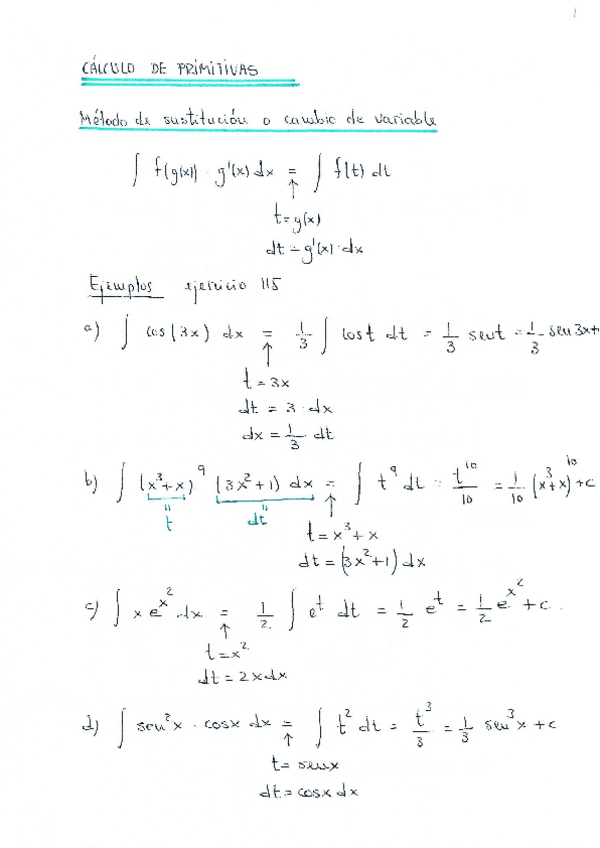 1
CÁLCULO DE PRIMITIVAS
Método de sustitución o cambio de variable
∫ f(g(x)) · g'(x) dx = ∫ f(t) dt
↑
t = g(x)
dt = g'(x) · dx
Ejemplos ejercicio 115
a) ∫ cos(3x) dx = 1/3 ∫ cos t dt = 1/3 sen t = 1/3 sen 3x +
↑
t = 3x
dt = 3 · dx
dx = 1/3 dt
b) ∫ (x³+x)⁹ (3x²+1) dx = ∫ t⁹ dt = t¹⁰/10 = 1/10 (x³+x)¹⁰ + c
" " ↑
t dt
t = x³ + x
dt = (3x²+1) dx
c) ∫ x e^x² dx = 1/2 ∫ e^t dt = 1/2 e^t = 1/2 e^x² + c.
↑
t = x²
dt = 2x dx
d) ∫ sen²x · cosx dx = ∫ t² dt = t³/3 = 1/3 sen³x + c
↑
t = senx
dt = cosx dx